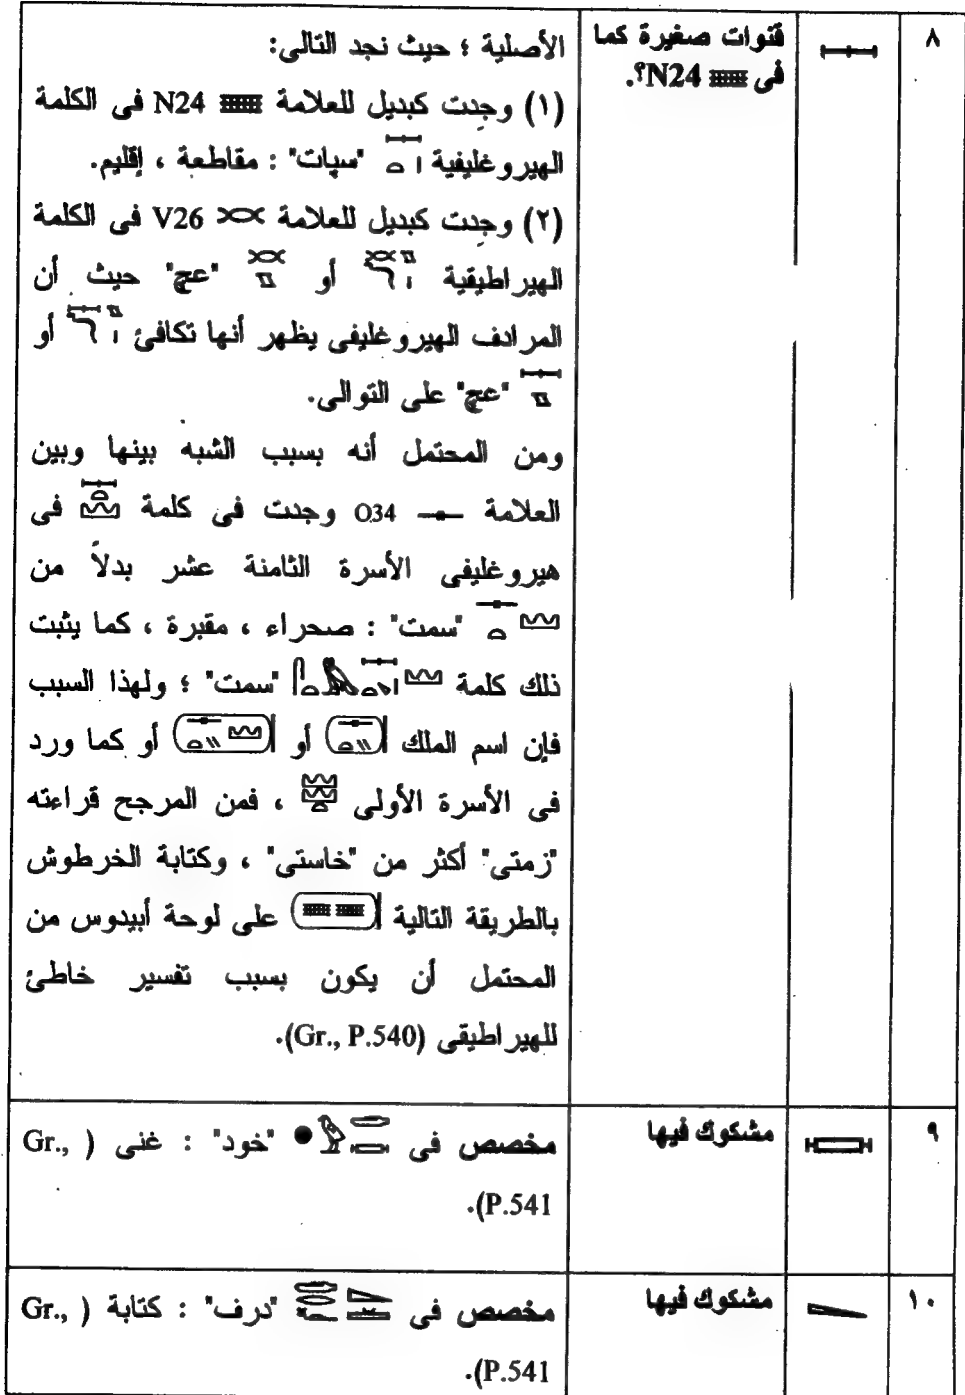 ٨
قنوات صغيرة كما
فى N24؟.
الأصلية ؛ حيث نجد التالى:
(١) وجدت كبديل للعلامة N24 فى الكلمة
الهيروغليفية "سپات" : مقاطعة ، إقليم.
(٢) وجدت كبديل للعلامة V26 فى الكلمة
الهيراطيقية أو "عچ" حيث أن
المرادف الهيروغليفى يظهر أنها تكافئ أو
"عچ" على التوالى.
ومن المحتمل أنه بسبب الشبه بينها وبين
العلامة O34 وجدت فى كلمة فى
هيروغليفى الأسرة الثامنة عشر بدلاً من
"سمت" : صحراء ، مقبرة ، كما يثبت
ذلك كلمة "سمت" ؛ ولهذا السبب
فإن اسم الملك أو أو كما ورد
فى الأسرة الأولى ، فمن المرجح قراءته
"زمتى" أكثر من "خاستى" ، وكتابة الخرطوش
بالطريقة التالية على لوحة أبيدوس من
المحتمل أن يكون بسبب تفسير خاطئ
للهيراطيقى (Gr., P.540).
٩
مشكوك فيها
مخصص فى "خود" : غنى ( Gr.,
P.541).
١٠
مشكوك فيها
مخصص فى "درف" : كتابة ( Gr.,
P.541).